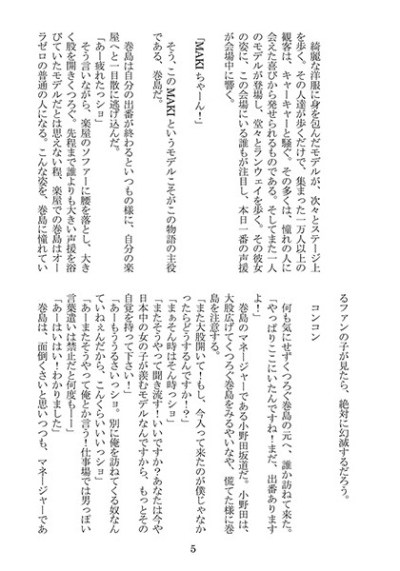 綺麗な洋服に身を包んだモデルが、次々とステージ上
を歩く。その人達が歩くだけで、集まった一万人以上の
観客は、キャーキャーと騒ぐ。その多くは、憧れの人に
会えた喜びから発せられるものである。そしてまた一人
のモデルが登場し、堂々とランウェイを歩く。その彼女
の姿に、この会場にいる誰もが注目し、本日一番の声援
が会場中に響く。
「MAKIちゃーん！」
そう、このMAKIというモデルこそがこの物語の主役
である、巻島だ。
巻島は自分の出番が終わるといつもの様に、自分の楽
屋へと一目散に逃げ込んだ。
「あー疲れたっショ」
そう言いながら、楽屋のソファーに腰を落とし、大き
く股を開きくつろぐ。先程まで誰よりも大きい声援を浴
びていたモデルだとは思えない程、楽屋での巻島はオー
ラゼロの普通の人になる。こんな姿を、巻島に憧れてい
るファンの子が見たら、絶対に幻滅するだろう。
コンコン
何も気にせずくつろぐ巻島の元へ、誰か訪ねて来た。
「やっぱりここにいたんですね！まだ、出番あります
よ！」
巻島のマネージャーである小野田坂道だ。小野田は、
大股広げてくつろぐ巻島をみるやいなや、慌てた様に巻
島を注意する。
「また大股開いて！もし、今入って来たのが僕じゃなか
ったらどうするんですか！？」
「まぁそん時はそん時っショ」
「またそうやって聞き流す！いいですか？あなたは今や
日本中の女の子が羨むモデルなんですから、もっとその
自覚を持って下さい！」
「あーもううるさいっショ。別に俺を訪ねてくる奴なん
ていねぇんだから、こんくらいいいっショ」
「あーまたそうやって俺とか言う！仕事場では男っぽい
言葉遣いは禁止だと何度もーー」
「あーはいはい！わかりました」
巻島は、面倒くさいと思いつつも、マネージャーであ
5